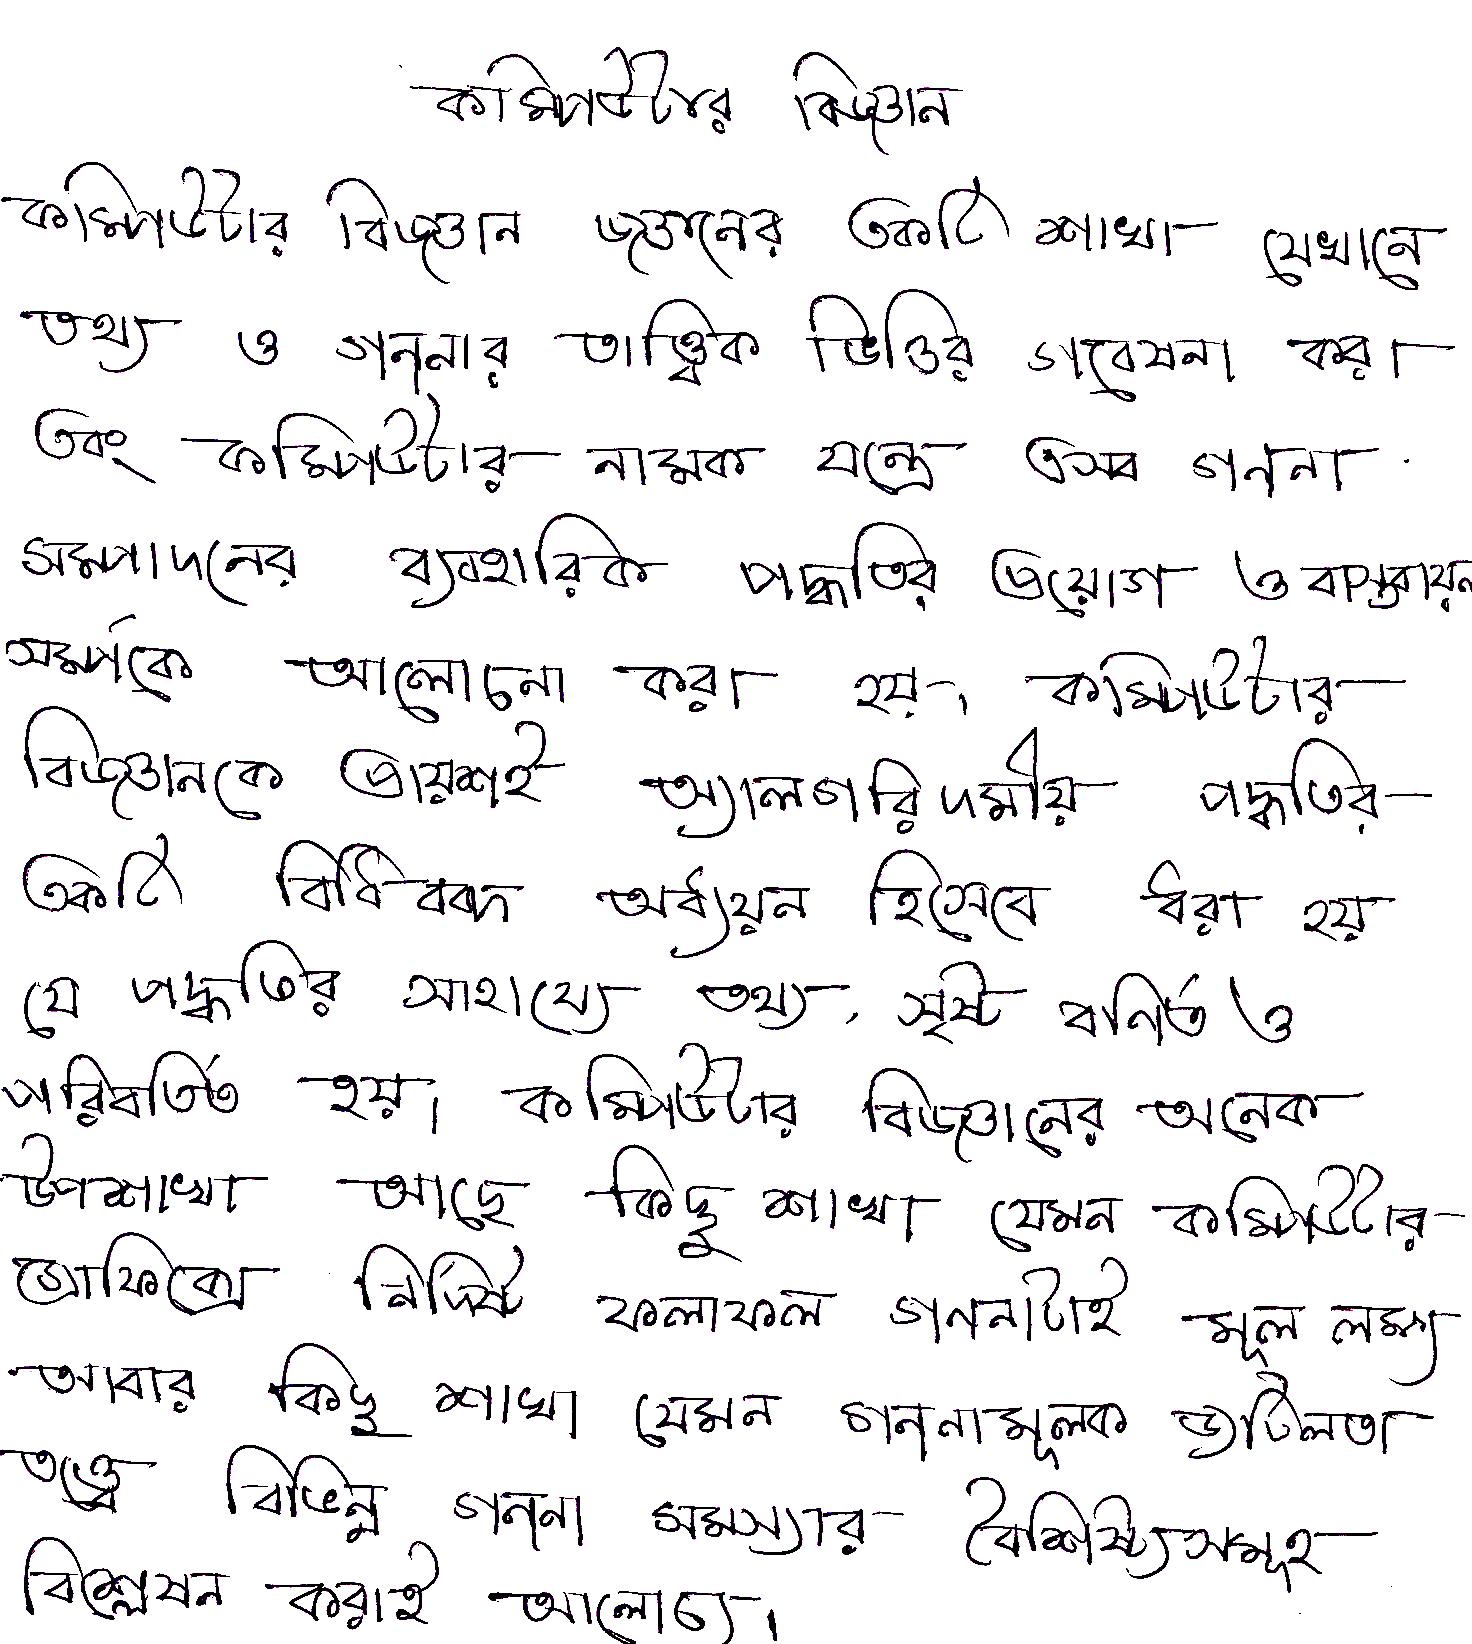 কম্পিউটার বিজ্ঞান
কম্পিউটার বিজ্ঞান জ্ঞানের একটি শাখা যেখানে
তথ্য ও গননার তাত্ত্বিক ভিত্তির গবেষনা করা
এবং কম্পিউটার নামক যন্ত্রে এসব গননা
সম্পাদনের ব্যবহারিক পদ্ধতির প্রয়োগ ও বাস্তবায়ন
সম্পর্কে আলোচনা করা হয়। কম্পিউটার
বিজ্ঞানকে প্রায়শই অ্যালগরিদমীয় পদ্ধতির
একটি বিধিবদ্ধ অধ্যয়ন হিসেবে ধরা হয়
যে পদ্ধতির সাহায্যে তথ্য, সৃষ্ট বর্নিত ও
পরিবর্তিত হয়। কম্পিউটার বিজ্ঞানের অনেক
উপশাখা আছে কিছু শাখা যেমন কম্পিউটার
গ্রাফিক্সে নির্দিষ্ট ফলাফল গননাটাই মূল লক্ষ্য
আবার কিছু শাখা যেমন গননামূলক জটিলতা
তত্ত্বে বিভিন্ন গননা সমস্যার বৈশিষ্ট্যসমূহ
বিশ্লেষন করাই আলোচ্য।